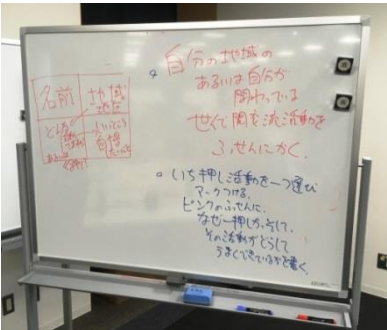 名前
地域
地区
どんな
自慢
自分の地域の
あるいは自分が
関わっている
世代間交流活動を
ふせんにかく。
いち押し活動を一つ選び
マークつける。
ピンクのふせんに、
なぜ一押しか、そして、
その活動がどうして
うまくできているかを書く。